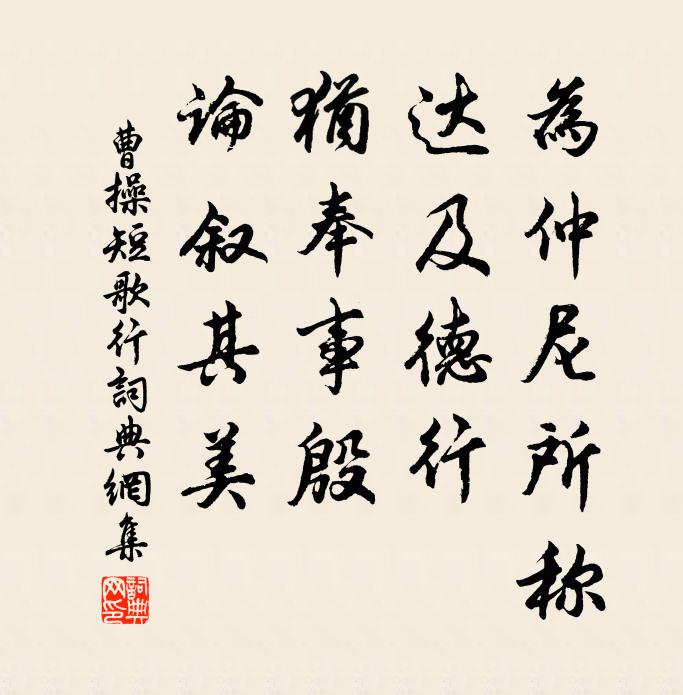 為仲尼所称
达及德行
猶奉事殷
論叙其美
曹操短歌行詞典網集
詞典网印